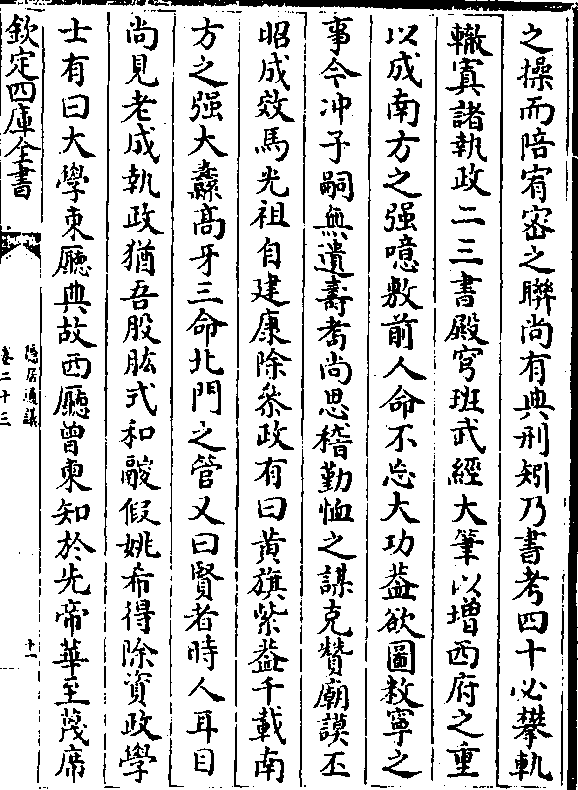 之操而陪宥密之聯尚有典刑矧乃書考四十必攀軌
轍寘諸執政二三書殿穹班武經大筆以增西府之重
以成南方之强噫敷前人命不忘大功葢欲圖敉寧之
事今冲子嗣無遺壽耉尚思稽勤恤之謀克贊廟謨丕
昭成效馬光祖自建康除叅政有曰黄旗紫葢千載南
方之强大纛髙牙三命北門之管又曰賢者時人耳目
尚見老成執政猶吾股肱式和敵假姚希得除資政學
士有曰大學東廳典故西廳曾東知於先帝華至蔑席
欽定四庫全書
隱居通議
卷二十三
十一